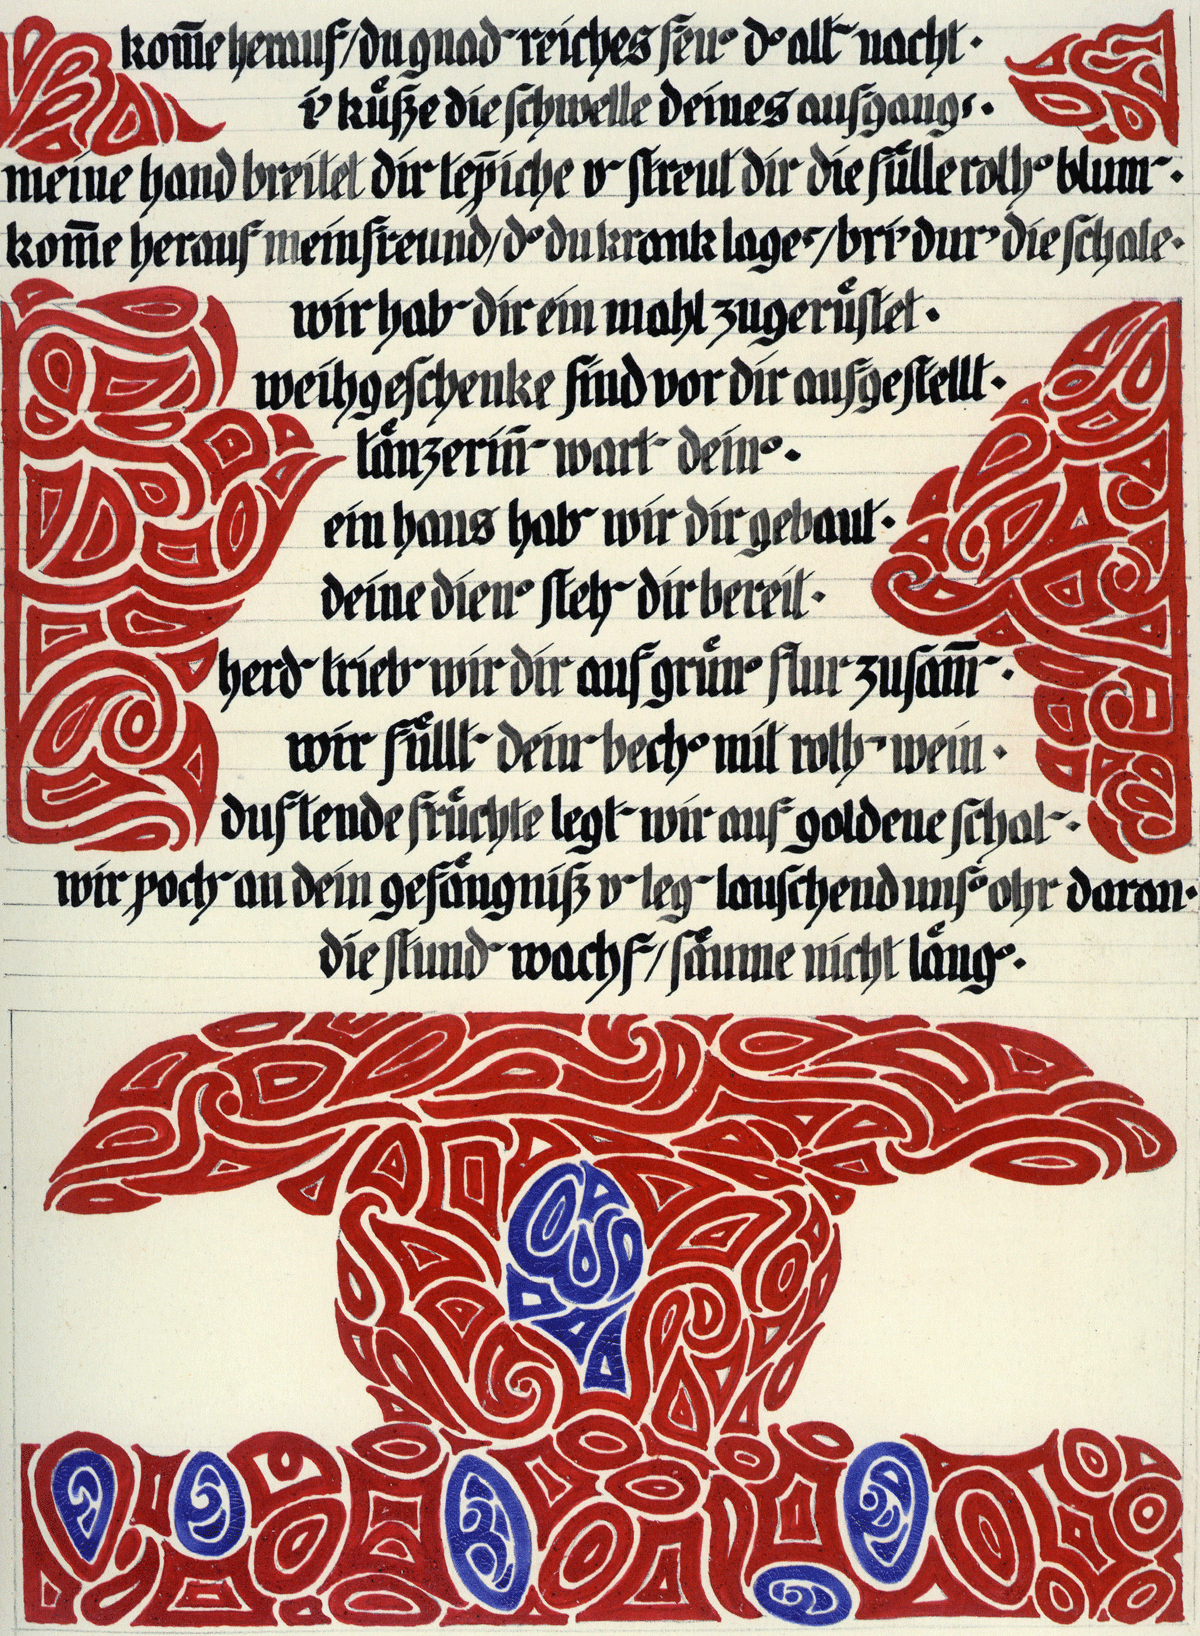 kom̄e herauf/du gnad~reiches feu° d° alt~ nacht·
i’ küße die schwelle deines aufgangs·
meine hand breitet dir tep̄iche v~ streut dir die fülle roth° blum~·
kom̄e herauf mein freund/d° du krank lage~/bri’ dur’ die schale·
wir hab~ dir ein mahl zugerüstet·
weihgeschenke sind vor dir aufgestellt·
tänzerin̄~ wart~ dein°·
ein haus hab~ wir dir gebaut·
deine dien° steh~ dir bereit·
herd~ trieb~ wir dir auf grün° flur zusam̄~·
wir füllt~ dein~ bech° mit roth~ wein·
duftende früchte legt~ wir auf goldene schal~·
wir poch~ an dein gefängniß v~ leg~ lauschend uns° ohr daran·
die stund~ wachs~/säume nicht läng°·